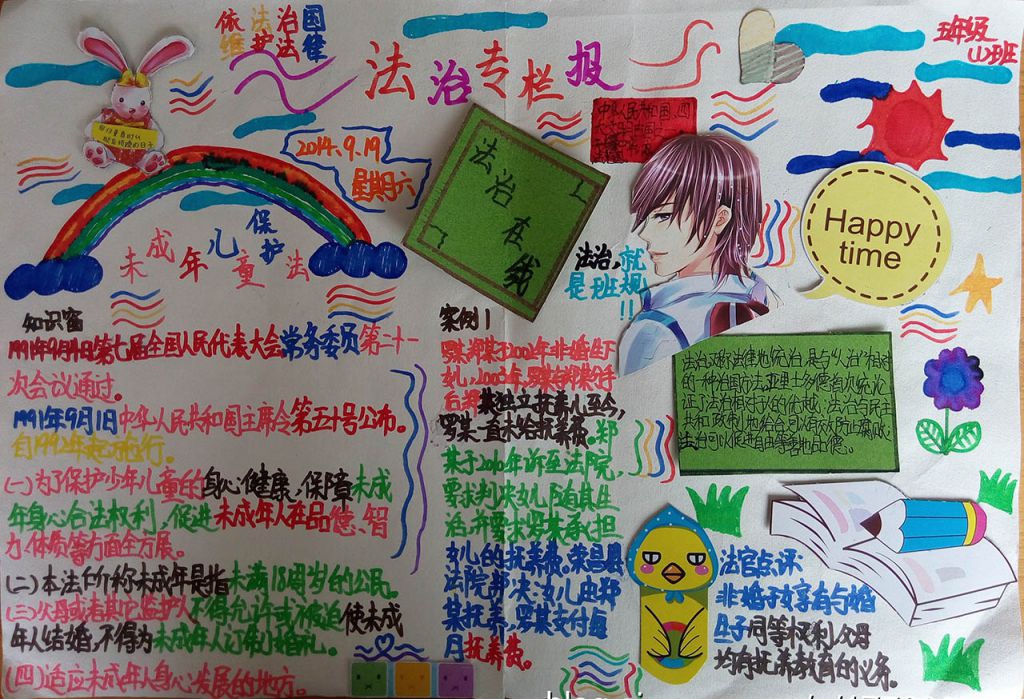 依法治国
维护法律
法治专栏报
班级
山班
2014.9.19
星期六
法治在
法治,就
是班规
!!
Happy
time
未成年儿童法
保护
知识窗
1991年9月4日第七届全国人民代表大会常务委员第二十一
次会议通过。
1991年9月1日中华人民共和国主席令第五十号公布。
自1992年起施行。
(一)为了保护少年儿童的身心健康,保障未成
年身心合法权利,促进未成年人在品德、智
力、体质等方面全方展。
(二)本法所称未成年是指未满18周岁的公民。
(三)父母或者其它监护人不得允许或被迫使未成
年人结婚,不得为未成年人订婚礼。
(四)适应未成年人身心发展的地方。
案例1
罗某郑某于2002年非婚生下
女儿,2003年,罗某郑某分手
台郑某独立抚养儿至今,
罗某一直未给抚养费。郑
某于2010年诉至法院,
要求判决女儿随其生
活,并要求罗某承担
女儿的抚养费,荣昌县
法院判决:女儿由郑
某抚养,罗某支付每
月抚养费。
法治又称法律地统治,是与"人治"相对
的一种治国方法,亚里士多德首次统论
证了法治相对于人的优越,法治与民主
共和政制地结合,可有效防止腐败;
法治可以促进自由等善地品德。
法官点评
非婚子女享有与婚
生子同等权利,父母
均有抚养教育的义务。